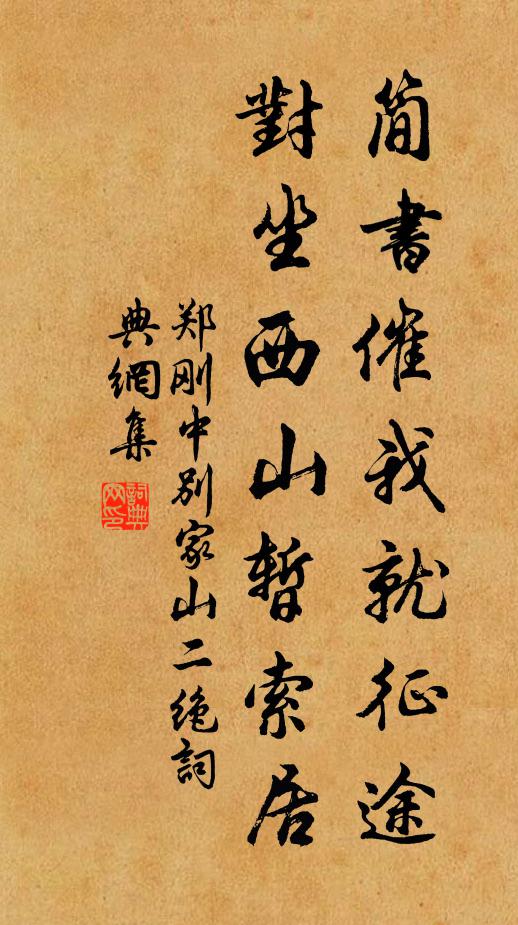 简書催我就征途
對坐西山暫索居
郑刚中别家山二绝詞
典網集
詞典
网印